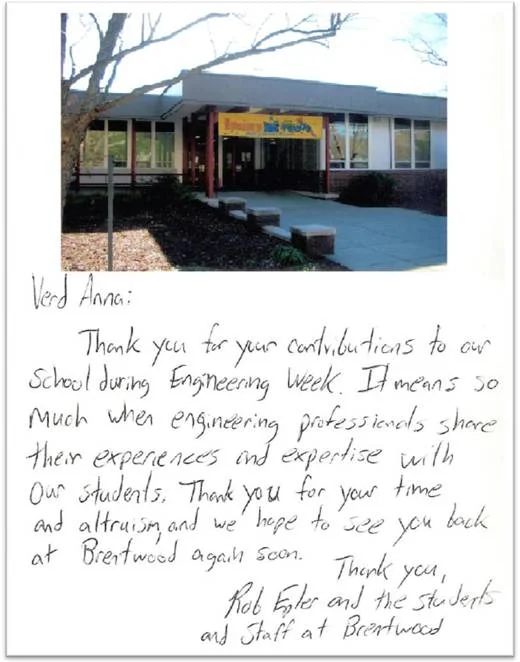 Verd Anna:
Thank you for your contributions to our
School during Engineering Week. It means so
much when engineering professionals share
their experiences and expertise with
our students. Thank you for your time
and altruism, and we hope to see you back
at Brentwood again soon.
Thank you,
Rob Epler and the students
and staff at Brentwood